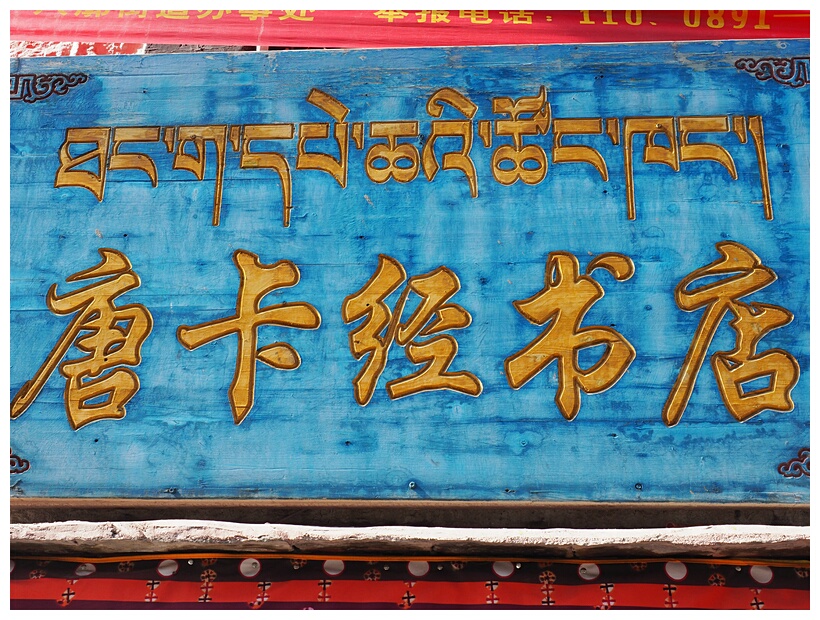 街道办事处 举报电话：110、0891—
ཐང་ག་དཔེ་ཆའི་ཚོང་ཁང་།
唐卡经书店